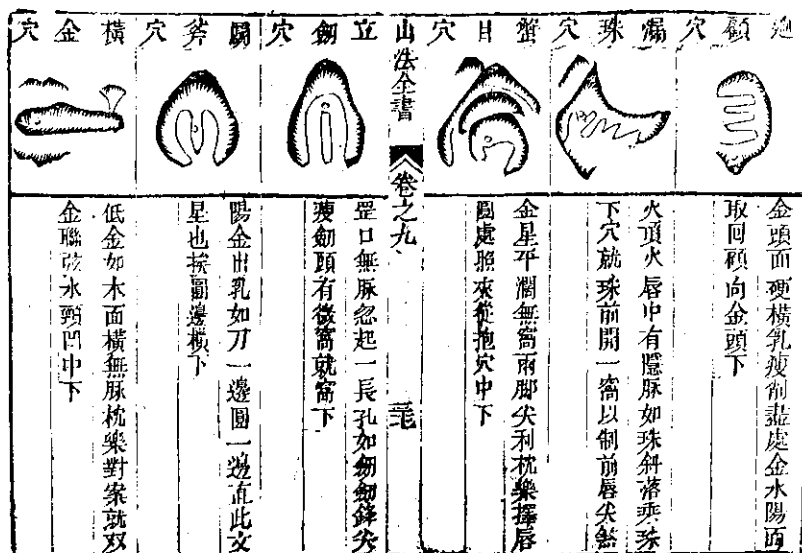 廻顧穴
金頭面硬橫乳瘦削盡處金水陽面
取回顧向金頭下
漏珠穴
火頂火唇中有隱脉如珠斜落乘珠
下穴就珠前開一窩以制前唇尖煞
蟹目穴
金星平濶無窩兩脚尖利枕樂擇唇
圓處照來從抱穴中下
山法全書
卷之九
三七
立劒穴
罡口無脉忽起一長孔如劒劒鋒尖
瘦劒頭有微窩就窩下
闘斧穴
陽金出乳如刀一邊圓一邊直此文
星也挨圓邊橫下
橫金穴
低金如木面橫無脉枕樂對案就双
金聯弦水頸凹中下